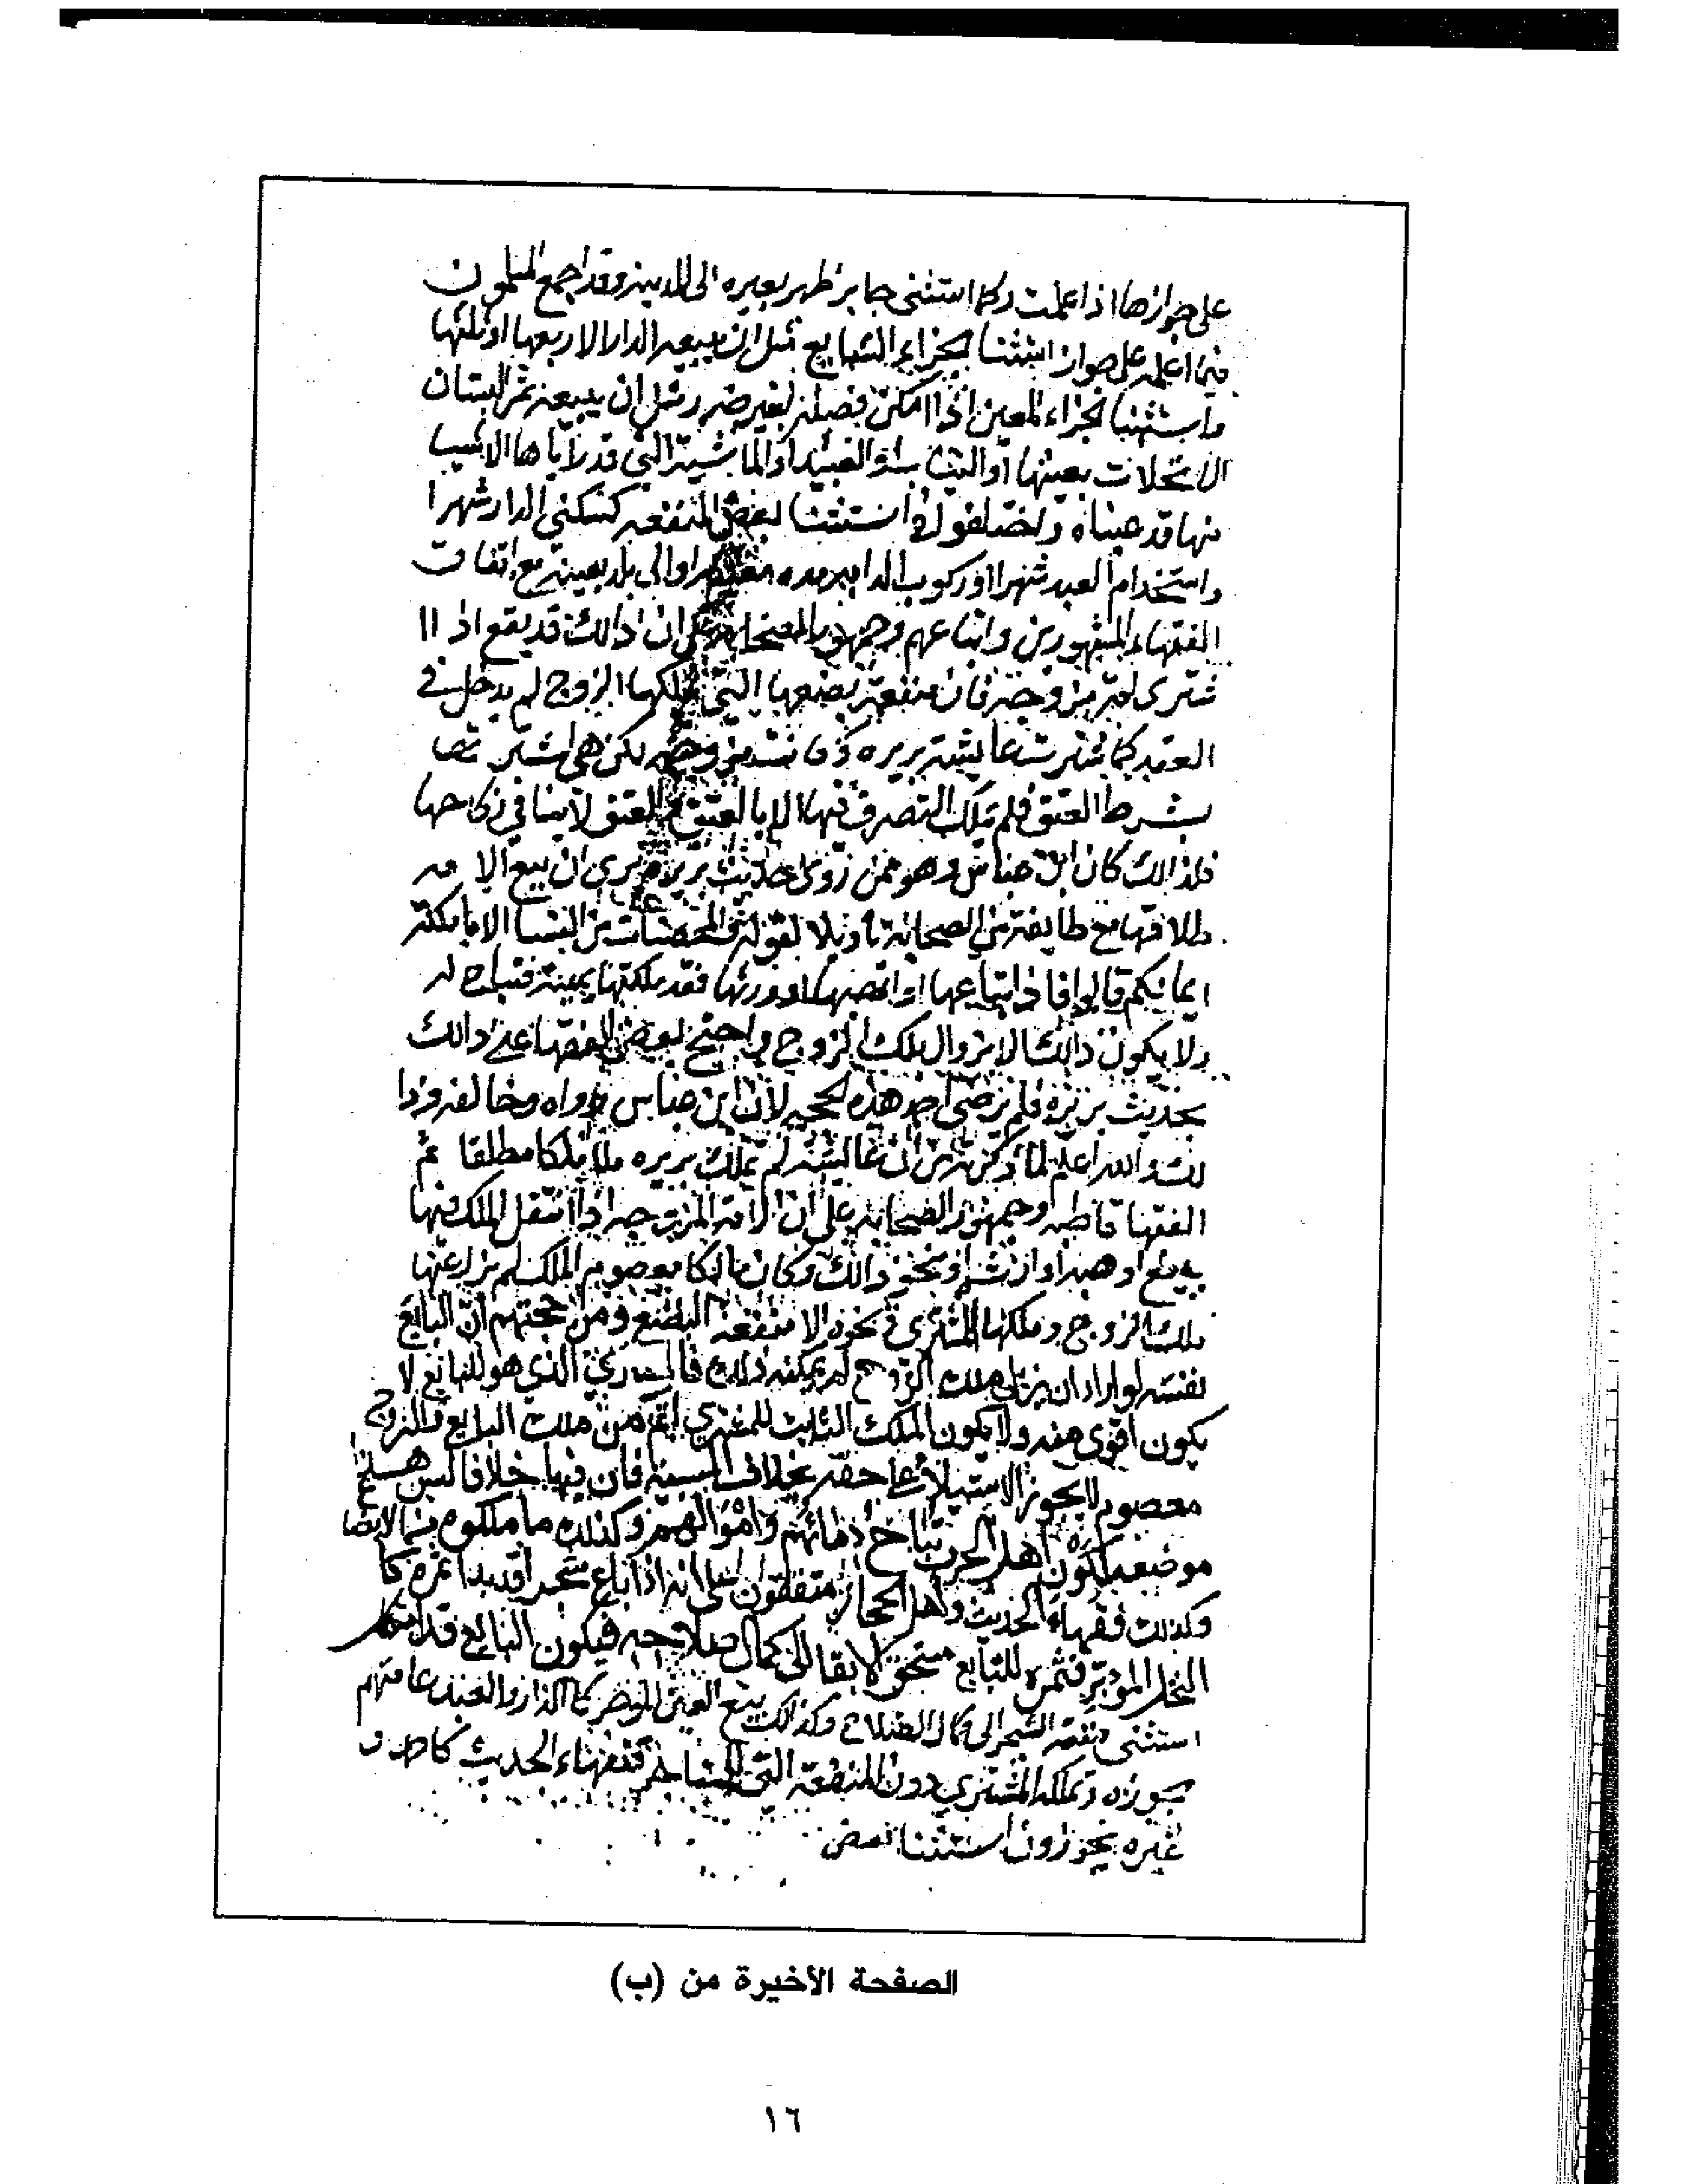 على جوازها اذا علمت وكما استثنى جابر ظهر بعيره الى المدينة وقد اجمع المسلمون
فيما اعلمه على جواز استثنا الجزاء الشايع مثل ان يبيعه الدار الا ربعها او ثلثها
واستثنا الجزاء المعين اذا امكن فصله بغير ضرر مثل ان يبيعه ثمر البستان
الا نخلات بعينها او الثياب او العبيد او الماشية التي قد راياها الا شيا
منها قد عيناه واختلفوا في استثنا بعض المنفعه كسكنى الدار شهرا
واستخدام العبد شهرا او ركوب الدابه مده معينه او الى بلد بعينه مع اتفاق
الفقهاء المشهورين واتباعهم وجمهور الصحابه على ان ذالك قد يقع اذا ا
شترى امة مزوجة فان منفعة بضعها التي يملكها الزوج لم يدخل في
العقد كما اشترت عايشة بريره وكانت مزوجه لكن هي اشترتها
بشرط العتق فلم تملك التصرف فيها الا بالعتق والعتق لا ينافي نكاحها
فلذالك كان ابن عباس وهو ممن روى حديث بريره يرى ان بيع الامه
طلاقها مع طايفة من الصحابة تاويلا لقوله والمحصنات من النسا الا ما ملكت
ايمانكم قالوا فاذا ابتاعها او اتهبها او ورثها فقد ملكتها يمينه فتباح له
ولا يكون ذالك الا بزوال ملك الزوج واحتج بعض الفقها على ذالك
بحديث بريره فلم يرضى احمد هذه الحجه لان ابن عباس رواه وخالفه وذا
لك والله اعلم لما ذكرته من ان عايشه لم تملك بريره ملكا مطلقا ثم
الفقها قاطبه وجمهور الصحابه على ان الامة المزوجه اذا انتقل الملك فيها
ببيع او هبه او ارث او نحو ذالك وكان مالكا معصوم الملك لم يزل عنها
ملك الزوج وملكها المشتري ونحوه الا منفعة البضع ومن حجتهم ان البايع
نفسه لو اراد ان يزيل ملك الزوج لم يمكنه ذلك فالمشتري الذي هو للبايع لا
يكون اقوى منه ولا يكون الملك الثابت للمشتري اتم من ملك البايع والزوج
معصوم لا يجوز الاستيلاء على حقه بخلاف المسبيه فان فيها خلافا ليس هذا
موضعه لكون اهل الحرب تباح دمائهم واموالهم وكذلك ما ملكوه من الابضاع
وكذلك فقهاء الحديث واهل الحجاز متفقون على انه اذا باع شجرا قد بدا ثمره كا
النخل المؤبر فثمره للبايع مستحق الابقا الى كمال صلاحه فيكون البايع قد
استثنى منفعة الشجر الى كمال الصلاح وكذالك بيع العين المؤجره كالدار والعبد عامتهم
يجوزه ويملكه المشتري دون المنفعة التي للمستاجر ففقهاء الحديث كاحمد و
غيره يجوزون استثنا بعض
الصفحة الأخيرة من (ب)
١٦